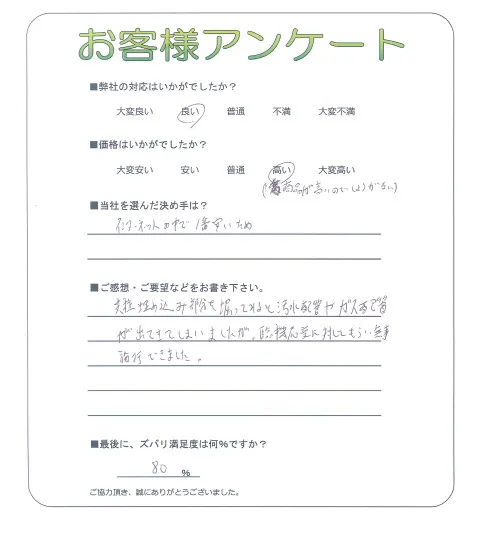 お客様アンケート
■弊社の対応はいかがでしたか？
大変良い 良い 普通 不満 大変不満
■価格はいかがでしたか？
大変安い 安い 普通 高い 大変高い
(商品が高いのでしょうがない)
■当社を選んだ決め手は？
インターネットの中で1番安いため
■ご感想・ご要望などをお書き下さい。
支柱埋め込み部分を掘ってみると汚水配管やガス配管
が出てきてしまいましたが、臨機応変に対応してもらい無事
設置できました。
■最後に、ズバリ満足度は何％ですか？
80 %
ご協力頂き、誠にありがとうございました。